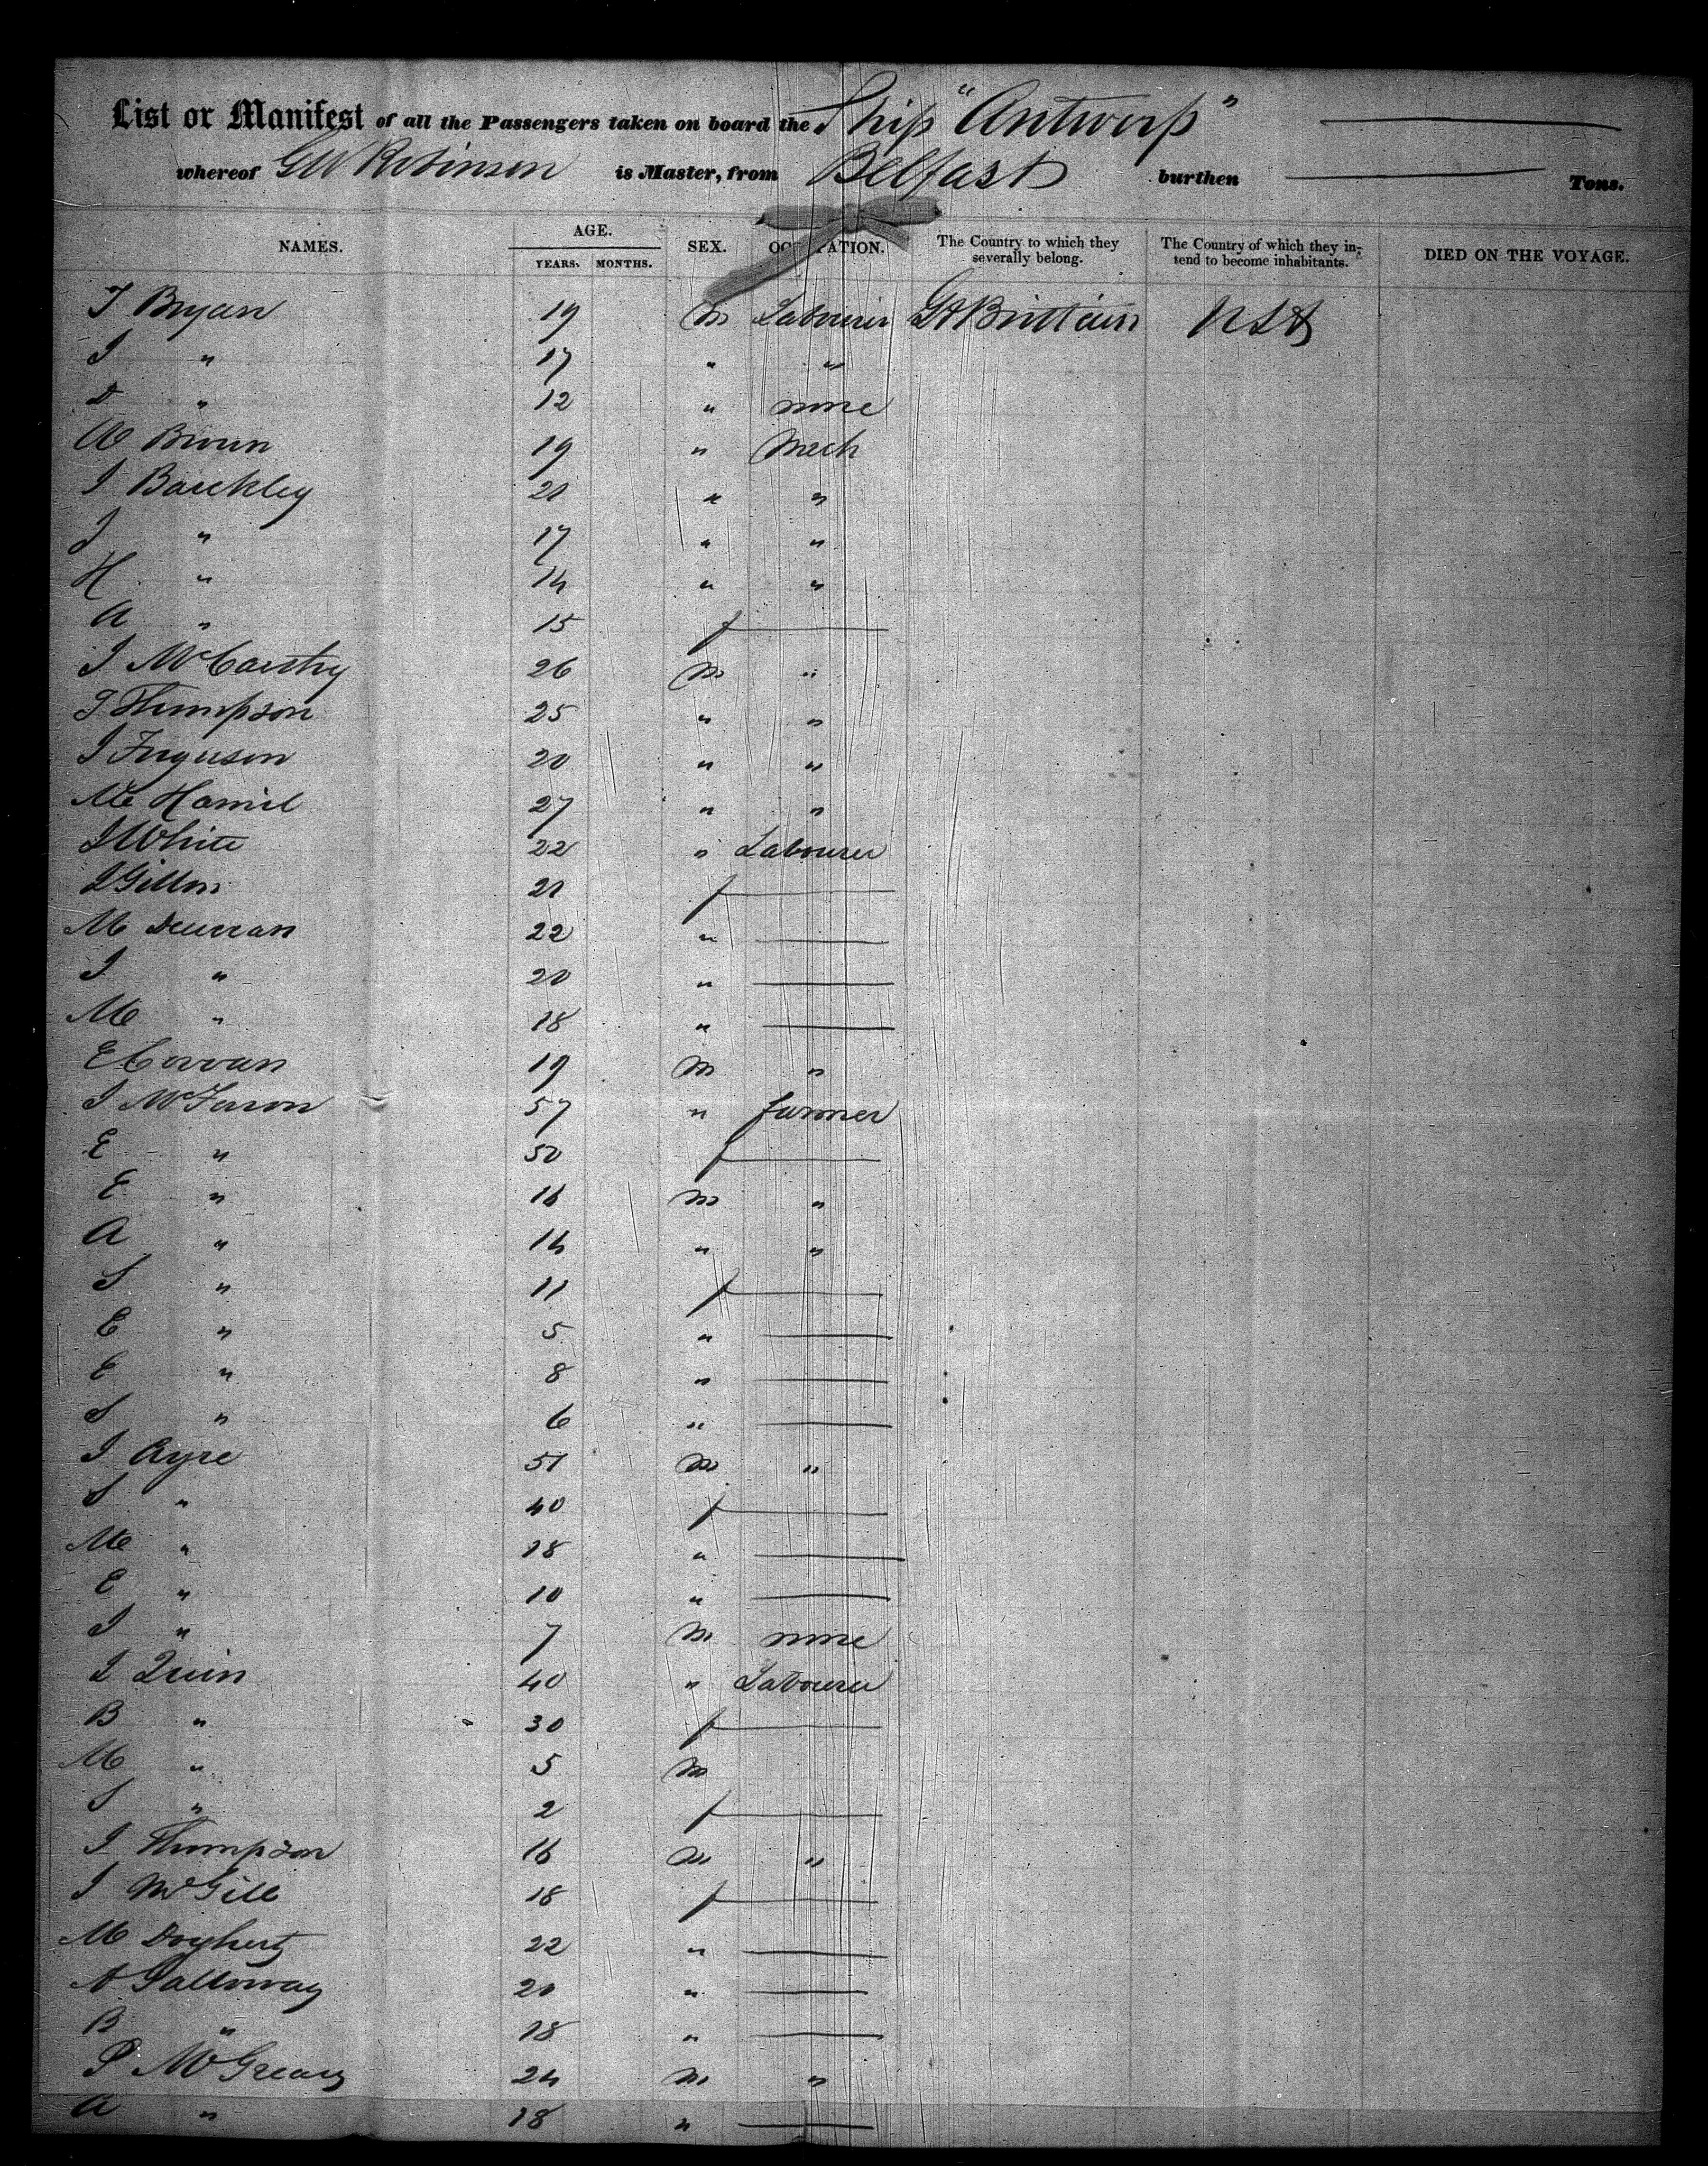 List or Manifest of all the Passengers taken on board the Ship "Antwerp"
whereof GW Robinson is Master, from Belfast burthen Tons.
NAMES. AGE. YEARS. MONTHS. SEX. OCCUPATION. The Country to which they severally belong. The Country of which they intend to become inhabitants. DIED ON THE VOYAGE.
T Bryan 19 m Labourer Gt Brittain USA
I " 17 " "
D " 12 " none
W Brown 19 " Mech
I Barckley 20 " "
J " 17 " "
H " 14 " "
A " 15 f
I McCarthy 26 m "
T Thompson 25 " "
I Ferguson 20 " "
Mc Hamil 27 " "
I White 22 " Labourer
I Gillon 21 f
M Duncan 22 "
I " 20 "
M " 18 "
E Corran 19 m "
I McFaron 57 " farmer
E " 50 f
E " 16 m "
A " 14 " "
S " 11 f
E " 5 "
E " 8 "
S " 6 "
I Ayre 51 m "
S " 40 f
M " 18 "
E " 10 "
I " 7 m none
I Quin 40 " Labourer
B " 30 f
M " 5 m
S " 2 f
I Thompson 16 m "
I McGill 18 f
M Dogherty 22 "
A Galloway 20 "
B " 18 "
P McGreary 24 m "
A " 18 "